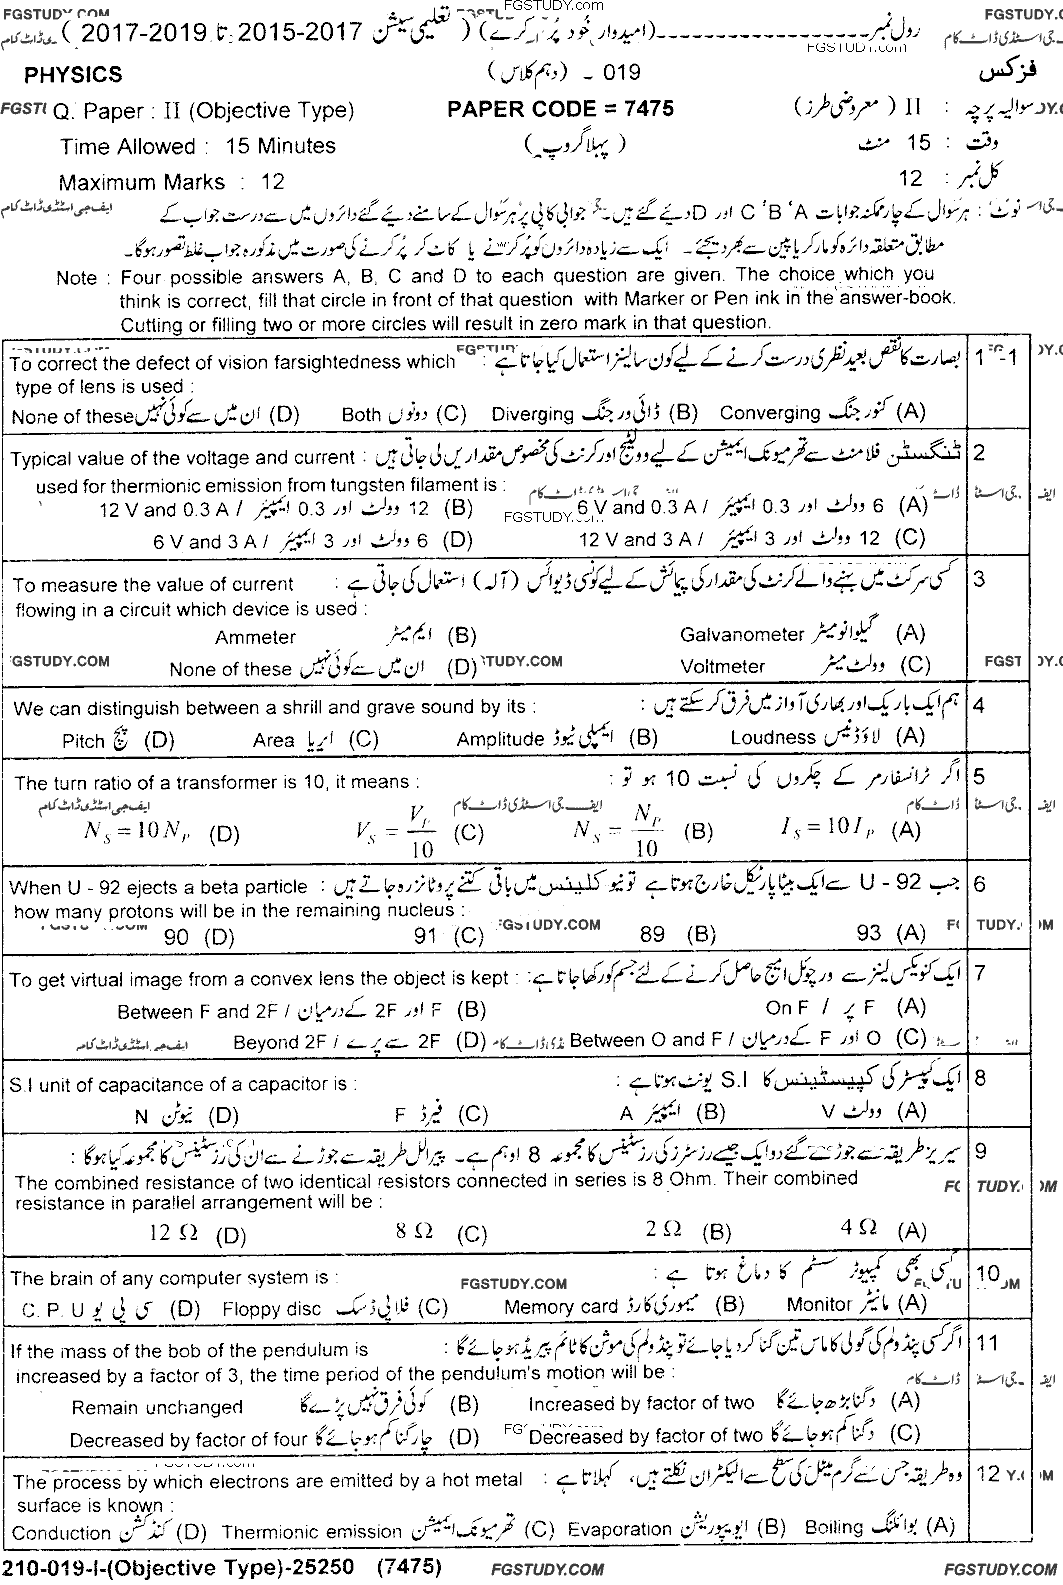 FGSTUDY.COM FGSTUDY.COM FGSTUDY.COM
رول نمبر ---------------- (امیدوار خود پُر کرے) (تعلیمی سیشن 2015-2017 تا 2017-2019)
FGSTUDY.com
PHYSICS 019 - (دہم کلاس) فزکس
Q. Paper : II (Objective Type) PAPER CODE = 7475 سوالیہ پرچہ : II (معروضی طرز)
Time Allowed : 15 Minutes (پہلا گروپ) وقت : 15 منٹ
Maximum Marks : 12 کل نمبر : 12
نوٹ : ہر سوال کے چار ممکنہ جوابات A ' B ' C اور D دیئے گئے ہیں۔ جوابی کاپی پر ہر سوال کے سامنے دیئے گئے دائروں میں سے درست جواب کے
مطابق متعلقہ دائرہ کو مارکر یا پین سے بھر دیجئے۔ ایک سے زیادہ دائروں کو پُر کرنے یا کاٹ کر پُر کرنے کی صورت میں مذکورہ جواب غلط تصور ہوگا۔
Note : Four possible answers A, B, C and D to each question are given. The choice which you
think is correct, fill that circle in front of that question with Marker or Pen ink in the answer-book.
Cutting or filling two or more circles will result in zero mark in that question.
1-1 بصارت کا نقص بعید نظری درست کرنے کے لیے کون سا لینز استعمال کیا جاتا ہے :
To correct the defect of vision farsightedness which
type of lens is used :
(A) کنورجنگ Converging (B) ڈائی ورجنگ Diverging (C) دونوں Both (D) ان میں سے کوئی نہیں None of these
2 ٹنگسٹن فلامنٹ سے تھرمیونک ایمیشن کے لیے وولٹیج اور کرنٹ کی مخصوص مقداریں لی جاتی ہیں :
Typical value of the voltage and current
used for thermionic emission from tungsten filament is :
(A) 6 وولٹ اور 0.3 ایمپیئر / 6 V and 0.3 A (B) 12 وولٹ اور 0.3 ایمپیئر / 12 V and 0.3 A
FGSTUDY.com
(C) 12 وولٹ اور 3 ایمپیئر / 12 V and 3 A (D) 6 وولٹ اور 3 ایمپیئر / 6 V and 3 A
3 کسی سرکٹ میں بہنے والے کرنٹ کی مقدار کی پیمائش کے لیے کونسی ڈیوائس (آلہ) استعمال کی جاتی ہے :
To measure the value of current
flowing in a circuit which device is used :
(A) گیلوانومیٹر Galvanometer (B) ایم میٹر Ammeter
(C) وولٹ میٹر Voltmeter (D) ان میں سے کوئی نہیں None of these
4 ہم ایک باریک اور بھاری آواز میں فرق کر سکتے ہیں :
We can distinguish between a shrill and grave sound by its :
(A) لاؤڈنیس Loudness (B) ایمپلی ٹیوڈ Amplitude (C) ایریا Area (D) پچ Pitch
5 اگر ٹرانسفارمر کے چکروں کی نسبت 10 ہو تو :
The turn ratio of a transformer is 10, it means :
ایف جی اسٹڈی ڈاٹ کام ایف جی اسٹڈی ڈاٹ کام
(A) I_S = 10 I_P (B) N_S = N_P / 10 (C) V_S = V_P / 10 (D) N_S = 10 N_P
6 جب U - 92 سے ایک بیٹا پارٹیکل خارج ہوتا ہے تو نیوکلیئس میں باقی کتنے پروٹانز رہ جاتے ہیں :
When U - 92 ejects a beta particle
how many protons will be in the remaining nucleus :
(A) 93 (B) 89 (C) 91 (D) 90
7 ایک کنویکس لینز سے ورچوئل امیج حاصل کرنے کے لئے جسم کو رکھا جاتا ہے :
To get virtual image from a convex lens the object is kept :
(A) F پر / On F (B) F اور 2F کے درمیان / Between F and 2F
(C) O اور F کے درمیان / Between O and F (D) 2F سے پرے / Beyond 2F
8 ایک کپیسٹر کی کپیسٹینس کا S.I یونٹ ہوتا ہے :
S.I unit of capacitance of a capacitor is :
(A) وولٹ V (B) ایمپیئر A (C) فیرڈ F (D) نیوٹن N
9 سیریز طریقہ سے جوڑے گئے دو ایک جیسے رزسٹرز کی رزسٹینس کا مجموعہ 8 اوہم ہے۔ پیرالل طریقہ سے جوڑنے سے ان کی رزسٹینس کا مجموعہ کیا ہوگا :
The combined resistance of two identical resistors connected in series is 8 Ohm. Their combined
resistance in parallel arrangement will be :
(A) 4 Ω (B) 2 Ω (C) 8 Ω (D) 12 Ω
10 کسی بھی کمپیوٹر سسٹم کا دماغ ہوتا ہے :
The brain of any computer system is : FGSTUDY.COM
(A) مانیٹر Monitor (B) میموری کارڈ Memory card (C) فلاپی ڈسک Floppy disc (D) سی پی یو C. P. U
11 اگر کسی پنڈولم کی گولی کا ماس تین گنا کر دیا جائے تو پنڈولم کی موشن کا ٹائم پیریڈ ہو جائے گا :
If the mass of the bob of the pendulum is
increased by a factor of 3, the time period of the pendulum's motion will be :
(A) دگنا بڑھ جائے گا Increased by factor of two (B) کوئی فرق نہیں پڑے گا Remain unchanged
(C) دگنا کم ہو جائے گا Decreased by factor of two (D) چار گنا کم ہو جائے گا Decreased by factor of four
12 وہ طریقہ جس سے گرم میٹل کی سطح سے الیکٹران نکلتے ہیں، کہلاتا ہے :
The process by which electrons are emitted by a hot metal
surface is known :
(A) بوائلنگ Boiling (B) ایوپیوریشن Evaporation (C) تھرمیونک ایمیشن Thermionic emission (D) کنڈکشن Conduction
210-019-I-(Objective Type)-25250 (7475) FGSTUDY.COM FGSTUDY.COM